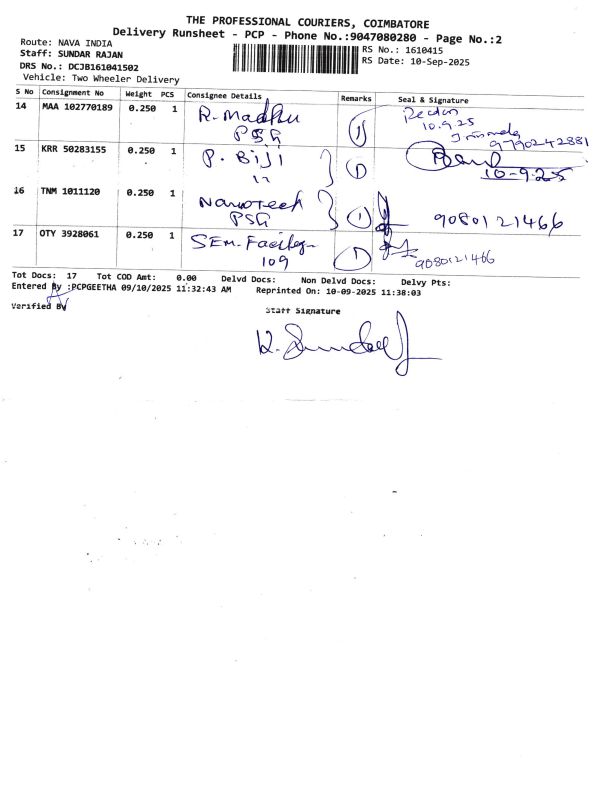 THE PROFESSIONAL COURIERS, COIMBATORE
Delivery Runsheet - PCP - Phone No.:9047080280 - Page No.:2
Route: NAVA INDIA
Staff: SUNDAR RAJAN
DRS No.: DCJB161041502
Vehicle: Two Wheeler Delivery
RS No.: 1610415
RS Date: 10-Sep-2025
S No Consignment No Weight PCS Consignee Details Remarks Seal & Signature
14 MAA 102770189 0.250 1 R. Madhu
PSG
1
10.9.25
9790242881
15 KRR 50283155 0.250 1 P. Biji
11
1
10-9-25
16 TNM 1011120 0.250 1 Nanotech
PSG
1
9080121466
17 OTY 3928061 0.250 1 SEM. Facility-
109
1
9080121466
Tot Docs: 17 Tot COD Amt: 0.00 Delvd Docs: Non Delvd Docs: Delvy Pts:
Entered By :PCPGEETHA 09/10/2025 11:32:43 AM Reprinted On: 10-09-2025 11:38:03
Verified By
Staff Signature